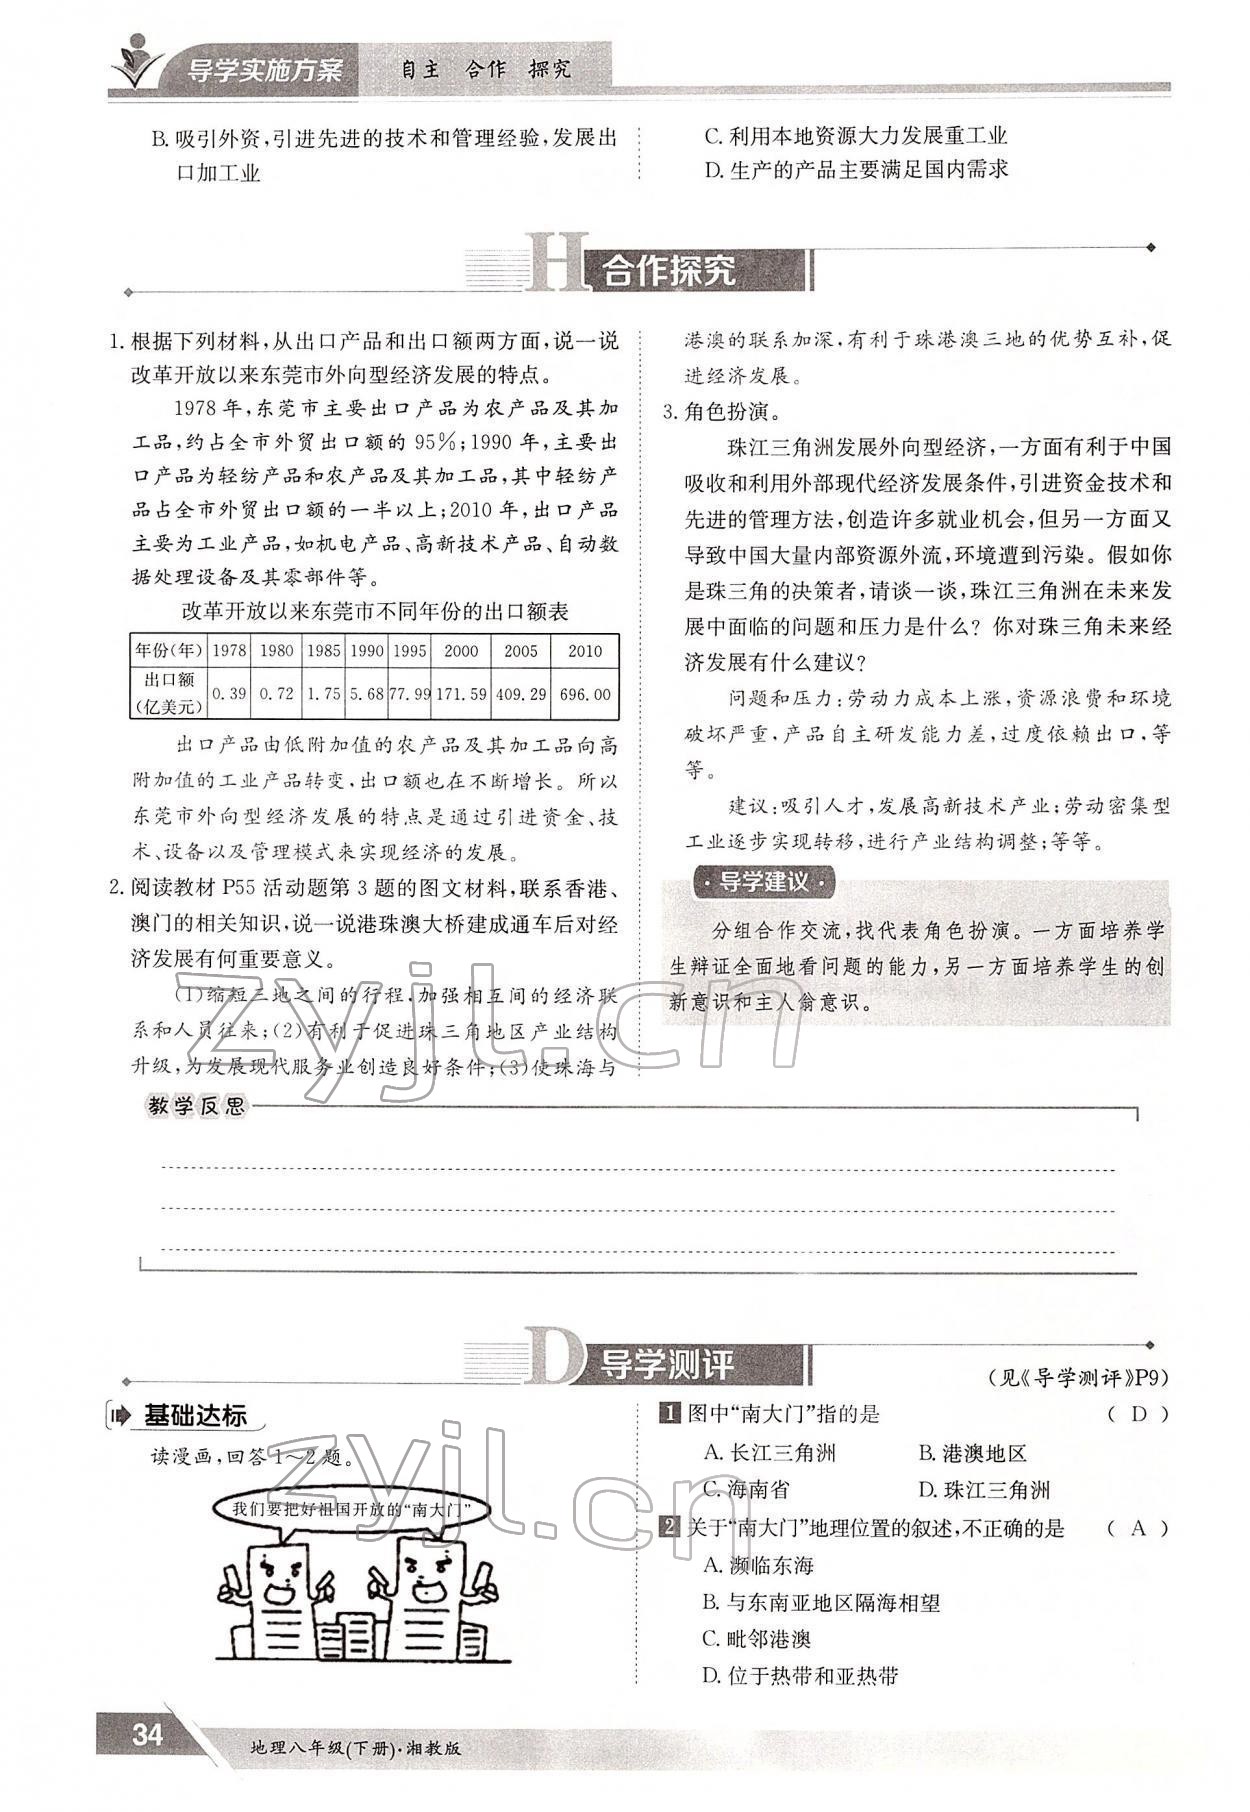 导学实施方案 自主 合作 探究
B. 吸引外资,引进先进的技术和管理经验,发展出
口加工业
C. 利用本地资源大力发展重工业
D. 生产的产品主要满足国内需求
H 合作探究
1. 根据下列材料,从出口产品和出口额两方面,说一说
改革开放以来东莞市外向型经济发展的特点。
1978 年,东莞市主要出口产品为农产品及其加
工品,约占全市外贸出口额的 95%;1990 年,主要出
口产品为轻纺产品和农产品及其加工品,其中轻纺产
品占全市外贸出口额的一半以上;2010 年,出口产品
主要为工业产品,如机电产品、高新技术产品、自动数
据处理设备及其零部件等。
改革开放以来东莞市不同年份的出口额表
年份(年) 1978 1980 1985 1990 1995 2000 2005 2010
出口额
(亿美元) 0.39 0.72 1.75 5.68 77.99 171.59 409.29 696.00
出口产品由低附加值的农产品及其加工品向高
附加值的工业产品转变,出口额也在不断增长。所以
东莞市外向型经济发展的特点是通过引进资金、技
术、设备以及管理模式来实现经济的发展。
2. 阅读教材 P55 活动题第 3 题的图文材料,联系香港、
澳门的相关知识,说一说港珠澳大桥建成通车后对经
济发展有何重要意义。
(1)缩短三地之间的行程,加强相互间的经济联
系和人员往来;(2)有利于促进珠三角地区产业结构
升级,为发展现代服务业创造良好条件;(3)使珠海与
港澳的联系加深,有利于珠港澳三地的优势互补,促
进经济发展。
3. 角色扮演。
珠江三角洲发展外向型经济,一方面有利于中国
吸收和利用外部现代经济发展条件,引进资金技术和
先进的管理方法,创造许多就业机会,但另一方面又
导致中国大量内部资源外流,环境遭到污染。假如你
是珠三角的决策者,请谈一谈,珠江三角洲在未来发
展中面临的问题和压力是什么?你对珠三角未来经
济发展有什么建议?
问题和压力:劳动力成本上涨,资源浪费和环境
破坏严重,产品自主研发能力差,过度依赖出口,等
等。
建议:吸引人才,发展高新技术产业;劳动密集型
工业逐步实现转移,进行产业结构调整;等等。
·导学建议·
分组合作交流,找代表角色扮演。一方面培养学
生辩证全面地看问题的能力,另一方面培养学生的创
新意识和主人翁意识。
教学反思
D 导学测评
(见《导学测评》P9)
基础达标
读漫画,回答1~2题。
我们要把好祖国开放的“南大门”
1 图中“南大门”指的是 ( D )
A. 长江三角洲 B. 港澳地区
C. 海南省 D. 珠江三角洲
2 关于“南大门”地理位置的叙述,不正确的是 ( A )
A. 濒临东海
B. 与东南亚地区隔海相望
C. 毗邻港澳
D. 位于热带和亚热带
34 地理八年级(下册)·湘教版
zyjl.cn
zyjl.cn